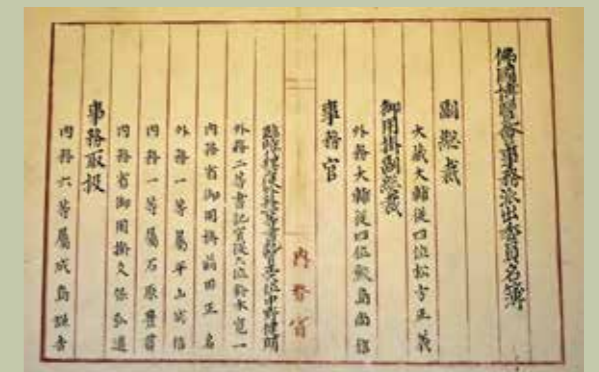 佛國博覽會事務派出委員名簿
副総裁
大蔵大輔従四位松方正義
御用掛副総裁
外務大輔従四位鮫島尚信
事務官
内務省
外務二等書記官従六位鈴木寛一
内務省御用掛前田正名
外務一等属平山成信
内務一等属石原豊貫
内務省御用掛久保弘道
事務取扱
内務六等属成島謙吉